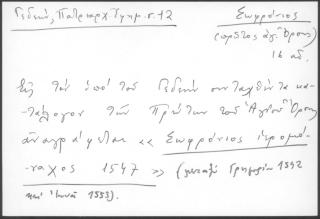 Γεδεών, Πατριαρχ. Ἐφημ. σ. 12
Σωφρόνιος
(πρῶτος ἁγ. Ὄρους)
16 αἰ.
Εἰς τὸν ὑπὸ τοῦ Γεδεὼν συνταχθέντα κα-
τάλογον τῶν Πρώτων τοῦ Ἁγίου Ὄρους
ἀναγράφεται «Σωφρόνιος ἱερομό-
ναχος 1547» (μεταξὺ Γρηγορίου 1542
καὶ 1553).